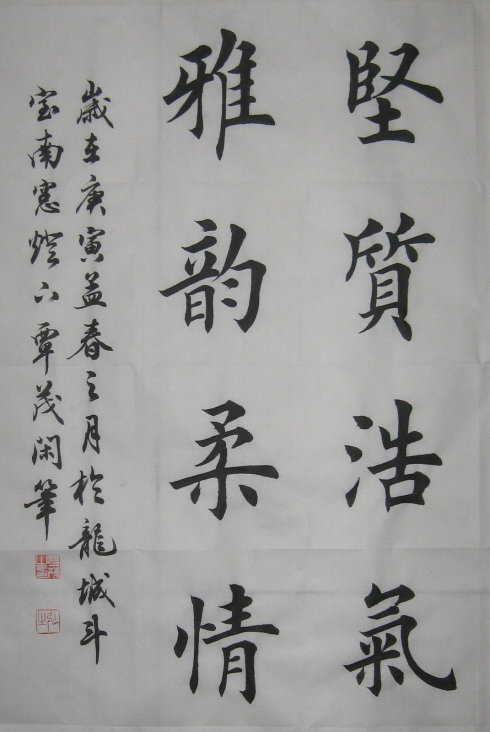 堅質浩氣
雅韵柔情
歲在庚寅孟春之月於龍城斗
室南窓燈下覃茂閑筆